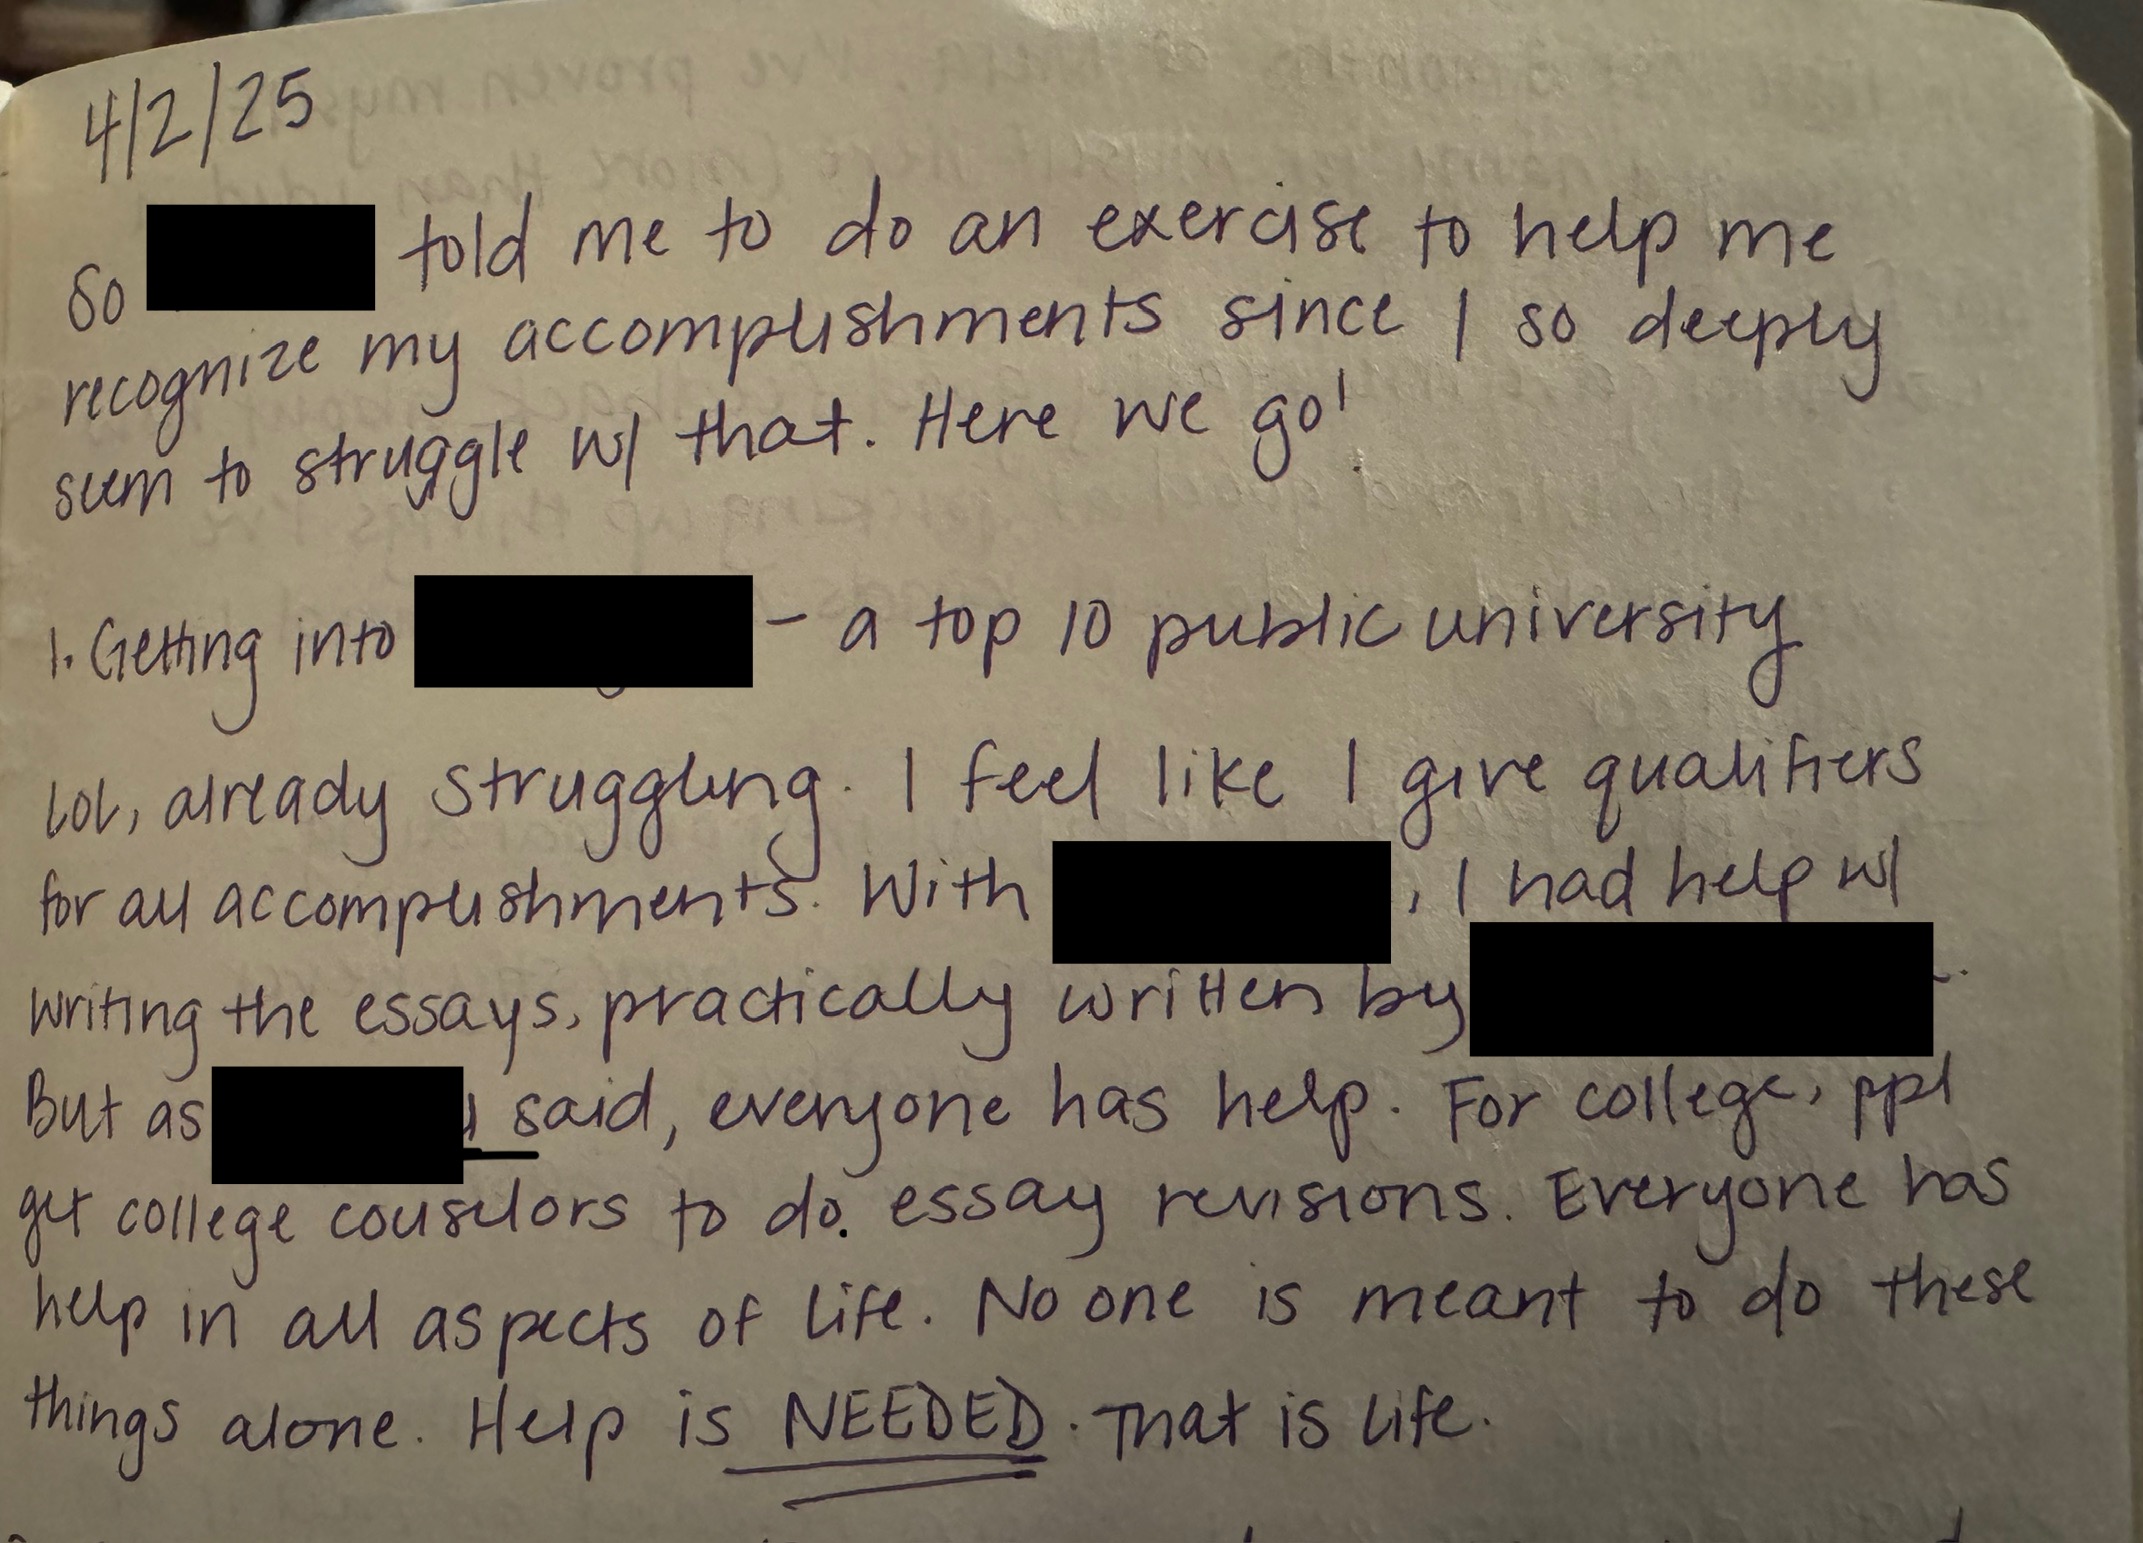 4/2/25
So told me to do an exercise to help me
recognize my accomplishments since I so deeply
seem to struggle w/ that. Here we go!
1. Getting into - a top 10 public university
lol, already struggling. I feel like I give qualifiers
for all accomplishments. With , I had help w/
writing the essays, practically written by
But as said, everyone has help. For college, ppl
get college couselors to do essay revisions. Everyone has
help in all aspects of life. No one is meant to do these
things alone. Help is NEEDED. That is life.